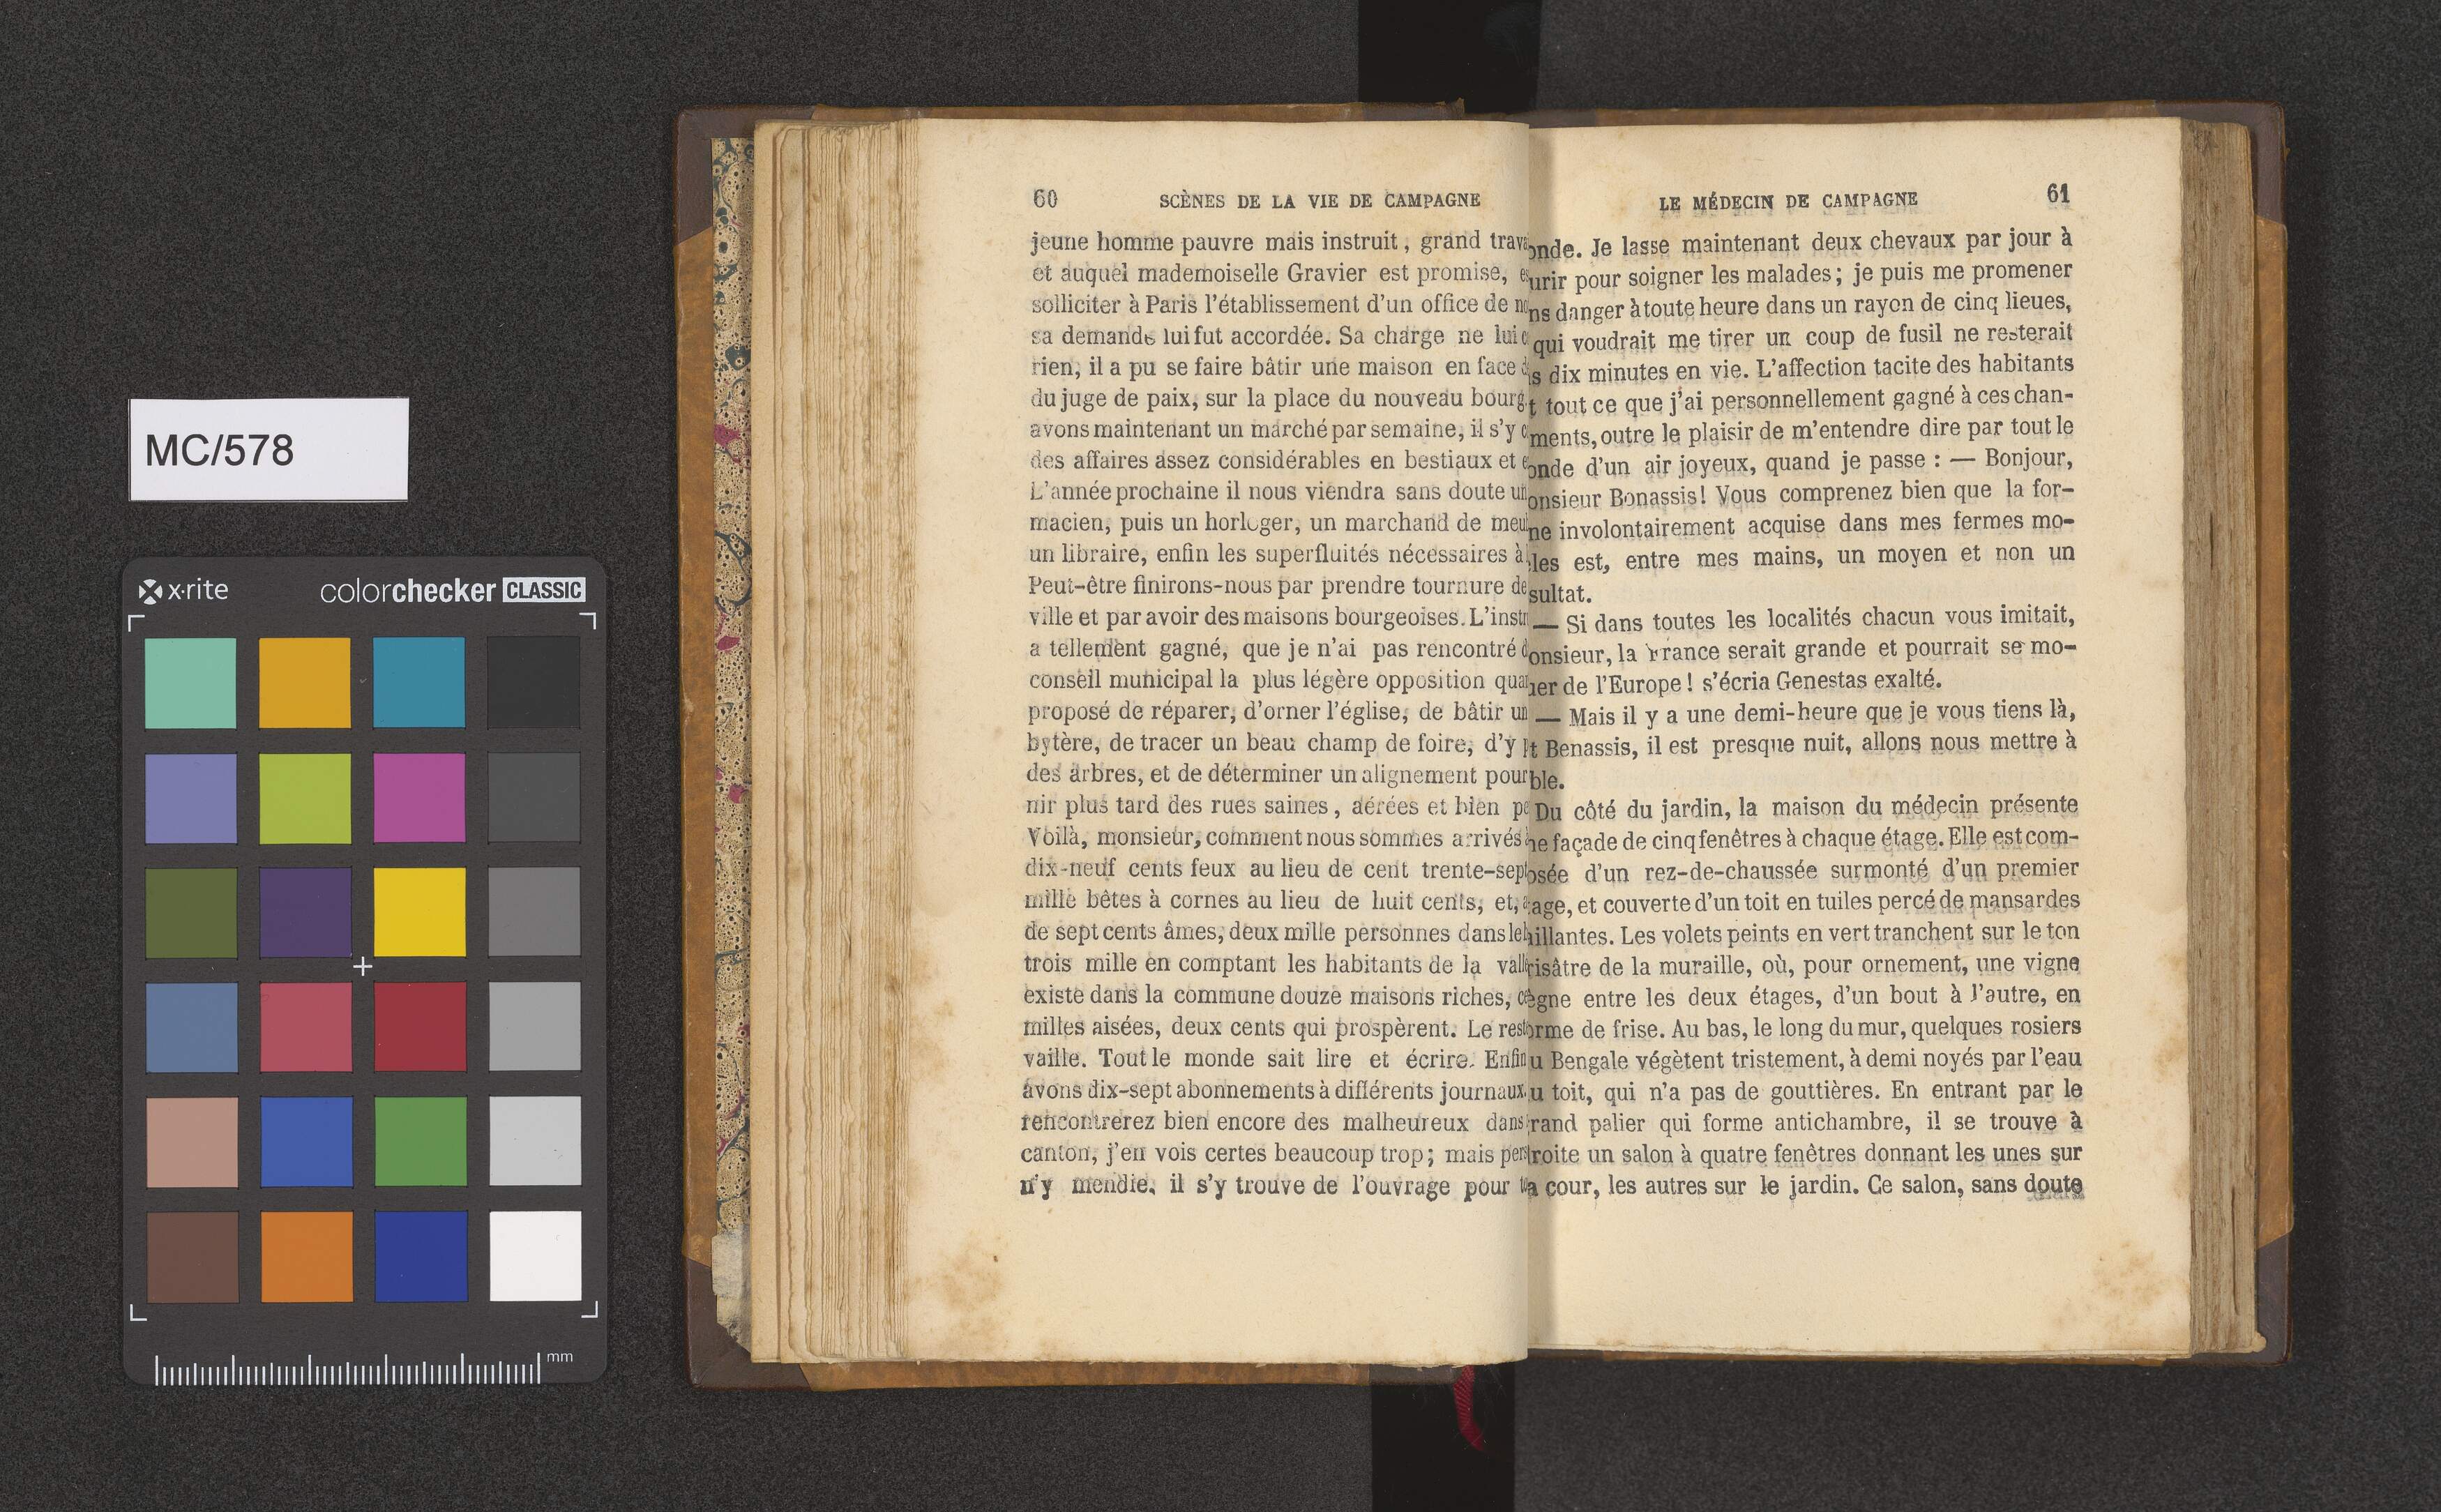 MC/578
x·rite
colorchecker CLASSIC
mm
60 SCÈNES DE LA VIE DE CAMPAGNE
jeune homme pauvre mais instruit, grand
et auquel mademoiselle Gravier est promise,
solliciter à Paris l'établissement d'un office de
sa demande lui fut accordée. Sa charge ne lui
rien, il a pu se faire bâtir une maison en face
du juge de paix, sur la place du nouveau bourg.
avons maintenant un marché par semaine, il s'y
des affaires assez considérables en bestiaux et
L'année prochaine il nous viendra sans doute
macien, puis un horloger, un marchand de
un libraire, enfin les superfluités nécessaires à
Peut-être finirons-nous par prendre tournure de
ville et par avoir des maisons bourgeoises. L'
a tellement gagné, que je n'ai pas rencontré
conseil municipal la plus légère opposition
proposé de réparer, d'orner l'église, de bâtir un
bytère, de tracer un beau champ de foire, d'y
des arbres, et de déterminer un alignement pour
nir plus tard des rues saines, aérées et bien
Voilà, monsieur, comment nous sommes arrivés
dix-neuf cents feux au lieu de cent trente-sept
mille bêtes à cornes au lieu de huit cents, et,
de sept cents âmes, deux mille personnes dans le
trois mille en comptant les habitants de la
existe dans la commune douze maisons riches,
milles aisées, deux cents qui prospèrent. Le
vaille. Tout le monde sait lire et écrire. Enfin
avons dix-sept abonnements à différents journaux.
rencontrerez bien encore des malheureux dans
canton, j'en vois certes beaucoup trop; mais
n'y mendie, il s'y trouve de l'ouvrage pour
LE MÉDECIN DE CAMPAGNE 61
onde. Je lasse maintenant deux chevaux par jour à
urir pour soigner les malades; je puis me promener
ns danger à toute heure dans un rayon de cinq lieues,
qui voudrait me tirer un coup de fusil ne resterait
s dix minutes en vie. L'affection tacite des habitants
t tout ce que j'ai personnellement gagné à ces chan-
ments, outre le plaisir de m'entendre dire par tout le
onde d'un air joyeux, quand je passe : — Bonjour,
onsieur Bonassis! Vous comprenez bien que la for-
ne involontairement acquise dans mes fermes mo-
les est, entre mes mains, un moyen et non un
sultat.
— Si dans toutes les localités chacun vous imitait,
onsieur, la France serait grande et pourrait se mo-
uer de l'Europe! s'écria Genestas exalté.
— Mais il y a une demi-heure que je vous tiens là,
t Benassis, il est presque nuit, allons nous mettre à
ble.
Du côté du jardin, la maison du médecin présente
ne façade de cinq fenêtres à chaque étage. Elle est com-
osée d'un rez-de-chaussée surmonté d'un premier
age, et couverte d'un toit en tuiles percé de mansardes
aillantes. Les volets peints en vert tranchent sur le ton
risâtre de la muraille, où, pour ornement, une vigne
ègne entre les deux étages, d'un bout à l'autre, en
orme de frise. Au bas, le long du mur, quelques rosiers
u Bengale végètent tristement, à demi noyés par l'eau
u toit, qui n'a pas de gouttières. En entrant par le
rand palier qui forme antichambre, il se trouve à
roite un salon à quatre fenêtres donnant les unes sur
a cour, les autres sur le jardin. Ce salon, sans doute